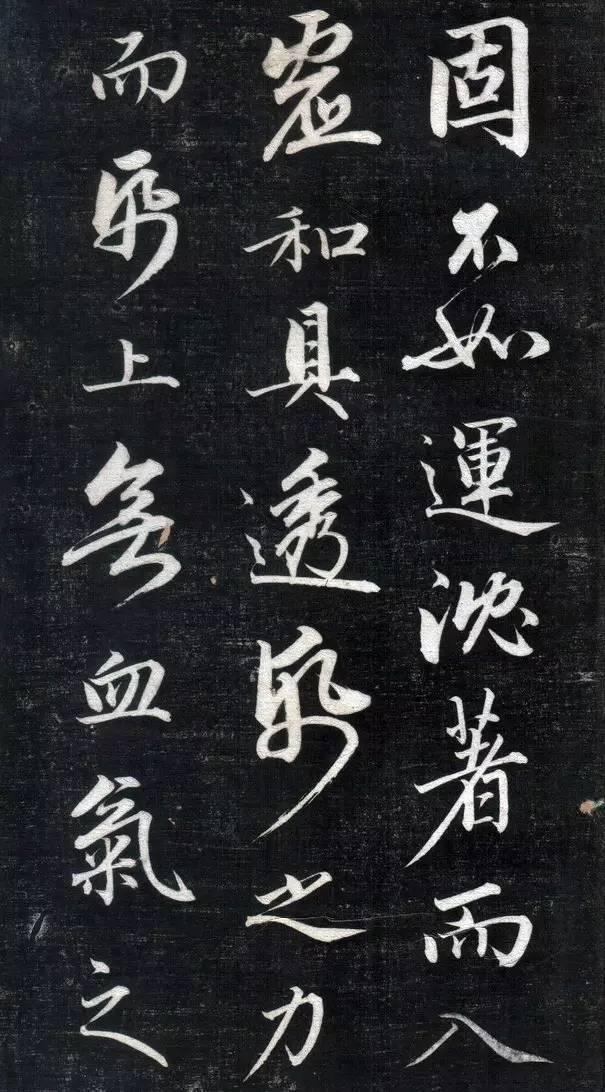 固不如運沈著而入
虛和具透帋之力
而帋上無血氣之